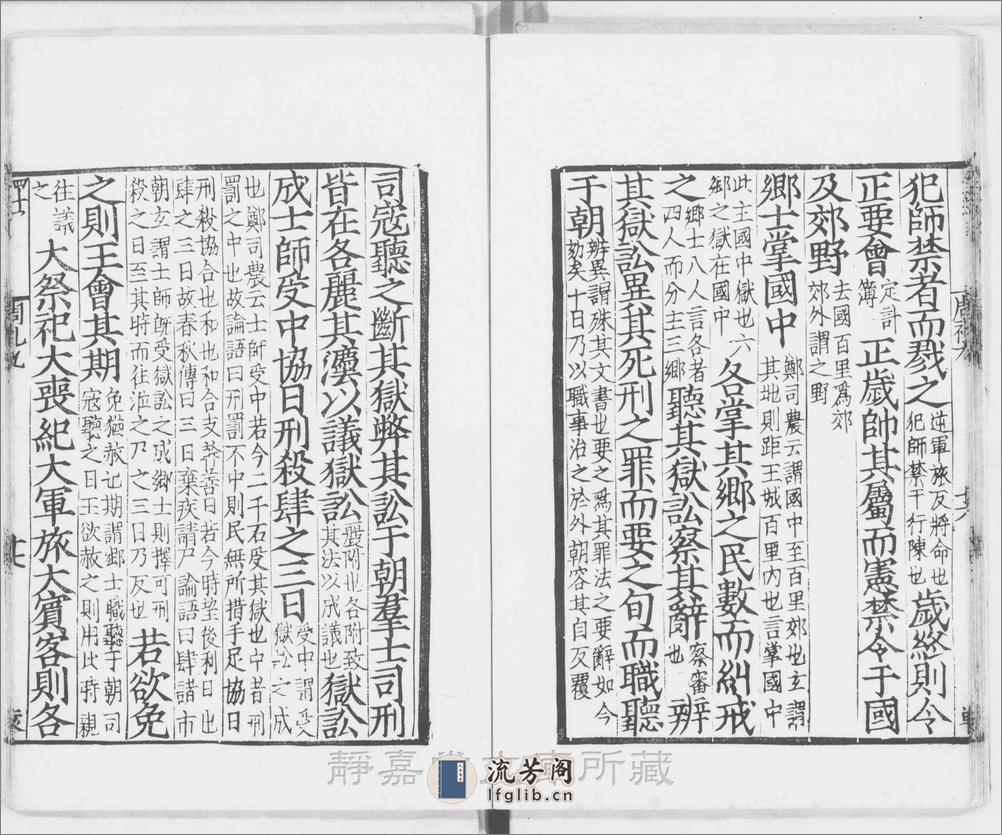 犯師禁者而戮之逆軍旅反將命也犯師禁干行陳也歲終則令
正要會定計簿正歲帥其屬而憲禁令于國
及郊野去國百里爲郊郊外謂之野
鄉士掌國中鄭司農云謂國中至百里郊也玄謂其地則距王城百里內也言掌國中
此主國中獄也六鄉之獄在國中各掌其鄉之民數而糾戒
之鄉士八人言各者四人而分主三鄉聽其獄訟察其辭察審也辨
其獄訟異其死刑之罪而要之旬而職聽
于朝辨異謂殊其文書也要之爲其罪法之要辭如今劾矣十日乃以職事治之於外朝容其自反覆
司寇聽之斷其獄弊其訟于朝羣士司刑
皆在各麗其灋以議獄訟麗附也各附致其法以成議也獄訟
成士師受中協日刑殺肆之三日受中謂受獄訟之成
也鄭司農云士師受中若今二千石受其獄也中者刑
罰之中也故論語曰刑罰不中則民無所措手足協日
刑殺協合也和也和合支幹善日若今時望後利日也
肆之三日故春秋傳曰三日棄疾請尸論語曰肆諸市
朝玄謂士師旣受獄訟之成鄉士則擇可刑
殺之日至其時而往涖之尸之三日乃反也若欲免
之則王會其期免猶赦也期謂鄉士職聽于朝司寇聽之日王欲赦之則用此時親
往議之大祭祀大喪紀大軍旅大賓客則各
周礼九
十七
靜嘉堂文庫所藏
流芳阁
lfglib.cn